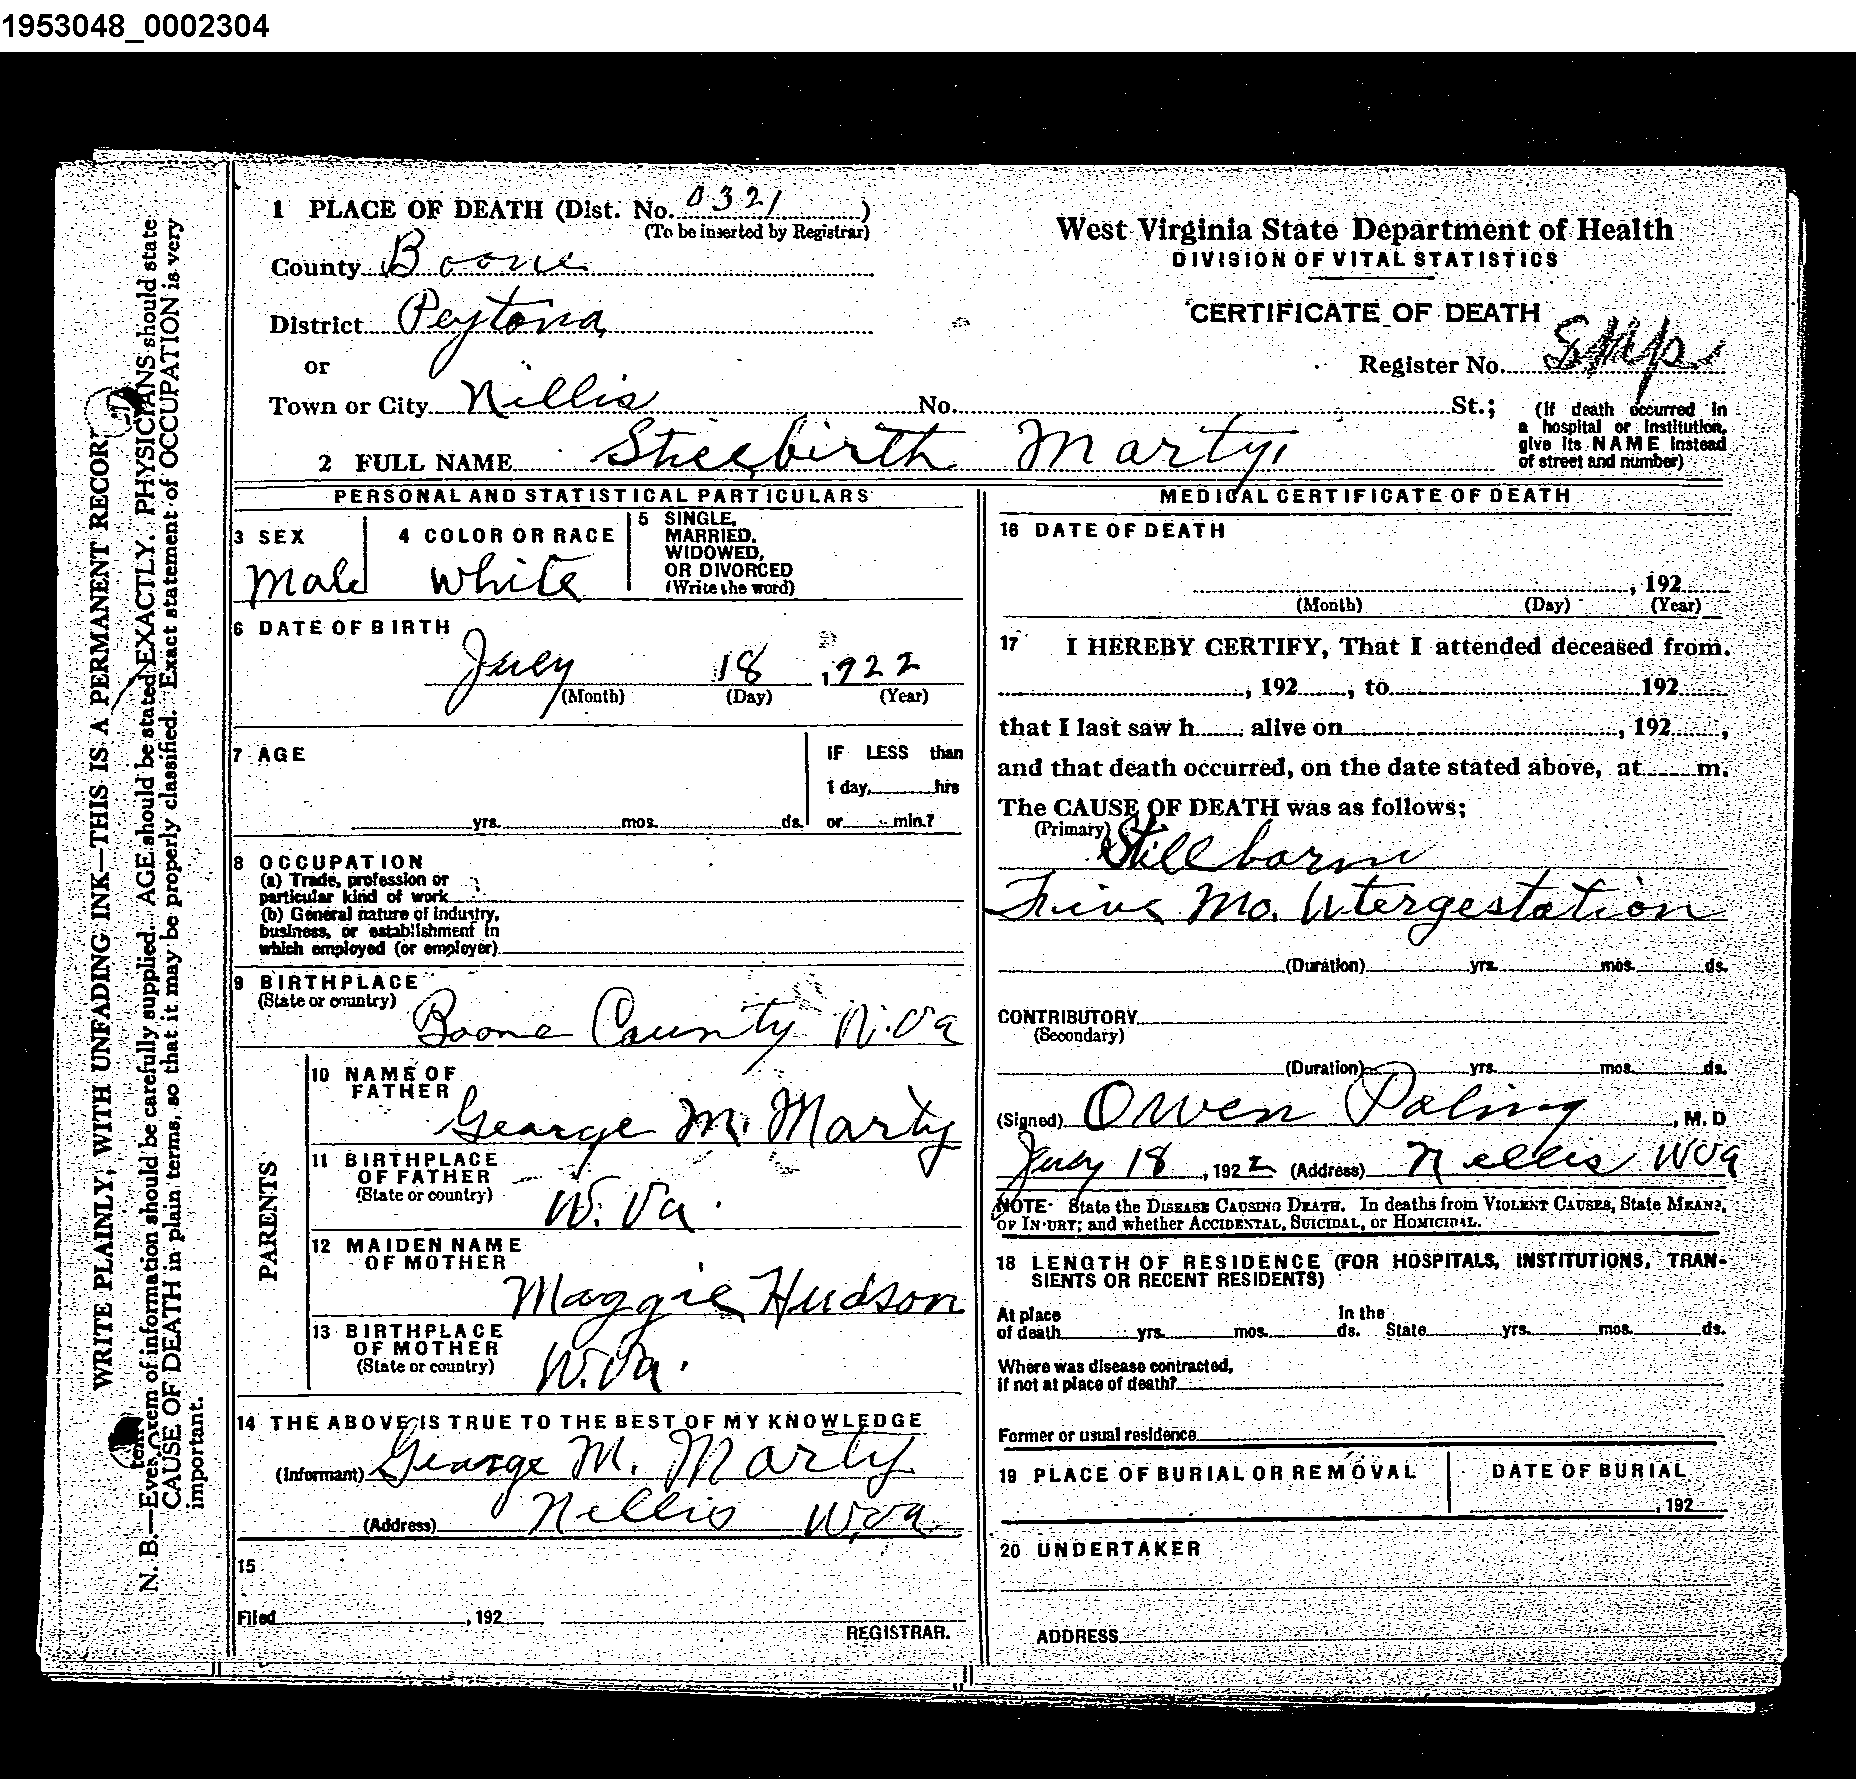 1953048_0002304
1 PLACE OF DEATH (Dist. No. 0321)
(To be inserted by Registrar)
County Boone
District Peytona
or
Town or City Nillis No. St.; (If death occurred in a hospital or institution, give its NAME instead of street and number)
2 FULL NAME Stillbirth Marty,
West Virginia State Department of Health
DIVISION OF VITAL STATISTICS
CERTIFICATE OF DEATH
Register No.
PERSONAL AND STATISTICAL PARTICULARS
3 SEX
Male
4 COLOR OR RACE
White
5 SINGLE,
MARRIED,
WIDOWED,
OR DIVORCED
(Write the word)
6 DATE OF BIRTH
July 18, 1922
(Month) (Day) (Year)
7 AGE
IF LESS than
1 day, hrs
yrs. mos. ds. or min.?
8 OCCUPATION
(a) Trade, profession or
particular kind of work
(b) General nature of industry,
business, or establishment in
which employed (or employer)
9 BIRTHPLACE
(State or country)
Boone County W.Va
PARENTS
10 NAME OF
FATHER
George M. Marty
11 BIRTHPLACE
OF FATHER
(State or country)
W. Va.
12 MAIDEN NAME
OF MOTHER
Maggie Hudson
13 BIRTHPLACE
OF MOTHER
(State or country)
W. Va.
14 THE ABOVE IS TRUE TO THE BEST OF MY KNOWLEDGE
(Informant) George M. Marty
(Address) Nellis W.Va
15
Filed , 192
REGISTRAR.
MEDICAL CERTIFICATE OF DEATH
16 DATE OF DEATH
, 192
(Month) (Day) (Year)
17 I HEREBY CERTIFY, That I attended deceased from
, 192 , to 192
that I last saw h alive on , 192 ,
and that death occurred, on the date stated above, at m.
The CAUSE OF DEATH was as follows:
(Primary) Stillborn
Five Mo. Utergestation
(Duration) yrs. mos. ds.
CONTRIBUTORY
(Secondary)
(Duration) yrs. mos. ds.
(Signed) Owen Paling, M. D
July 18, 1922 (Address) Nellis WVa
NOTE- State the DISEASE CAUSING DEATH. In deaths from VIOLENT CAUSES, State MEANS
OF INJURY; and whether ACCIDENTAL, SUICIDAL, or HOMICIDAL.
18 LENGTH OF RESIDENCE (FOR HOSPITALS, INSTITUTIONS, TRAN-
SIENTS OR RECENT RESIDENTS)
At place
of death yrs. mos. ds. In the State yrs. mos. ds.
Where was disease contracted,
if not at place of death?
Former or usual residence
19 PLACE OF BURIAL OR REMOVAL
DATE OF BURIAL
, 192
20 UNDERTAKER
ADDRESS
WRITE PLAINLY, WITH UNFADING INK—THIS IS A PERMANENT RECORD
N. B.—Every item of information should be carefully supplied. AGE should be stated EXACTLY. PHYSICIANS should state
CAUSE OF DEATH in plain terms, so that it may be properly classified. Exact statement of OCCUPATION is very
important.